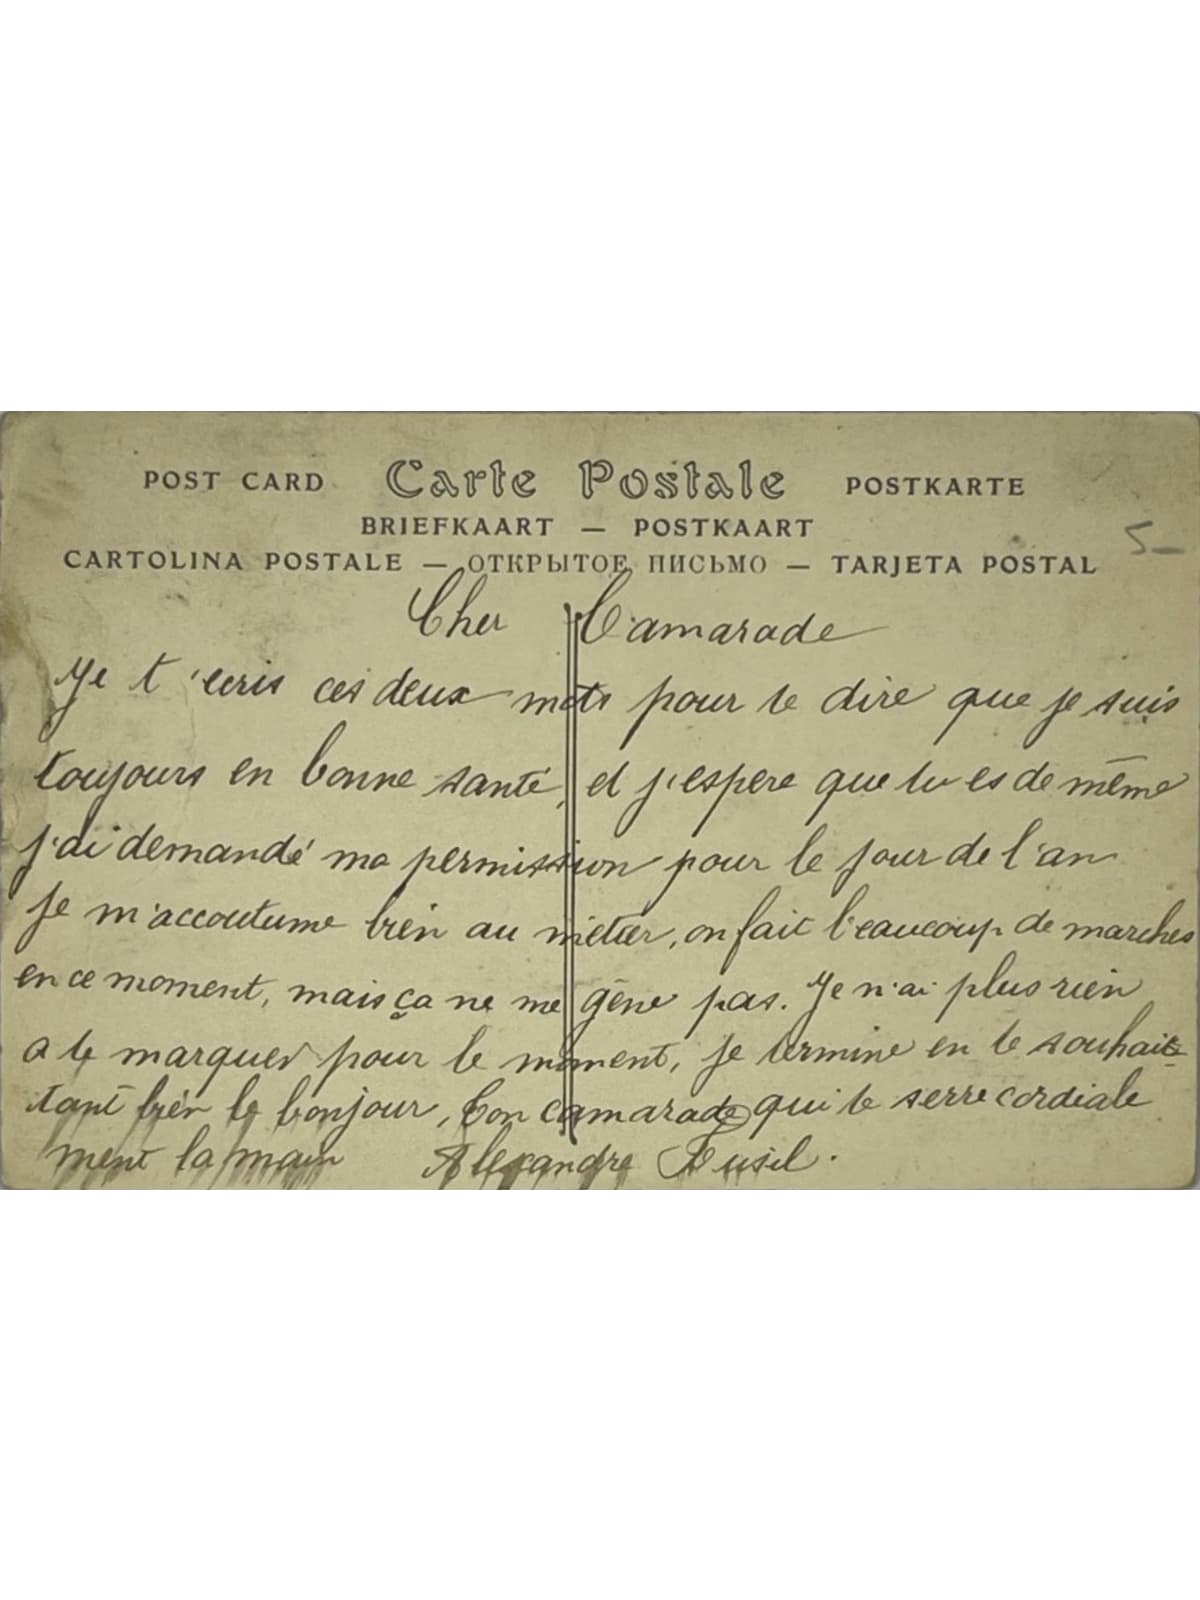 POST CARD Carte Postale POSTKARTE
BRIEFKAART — POSTKAART
CARTOLINA POSTALE — ОТКРЫТОЕ ПИСЬМО — TARJETA POSTAL
5—
Cher Camarade
Je t'ecris ces deux mots pour te dire que je suis
toujours en bonne santé, et j'espere que tu es de même
j'ai demandé ma permission pour le jour de l'an
Je m'accoutume bien au métier, on fait beaucoup de marches
en ce moment, mais ça ne me gêne pas. Je n'ai plus rien
a te marquer pour le moment, je termine en te souhait-
tant bien le bonjour, Ton camarade qui te serre cordiale
ment la main Alexandre